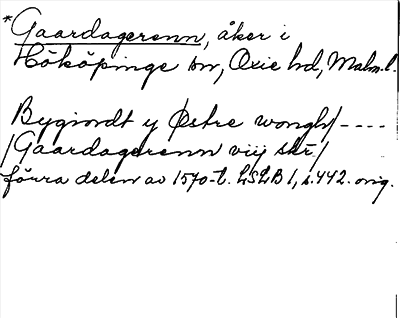 *Gaardagerenn, åker i
Hököpinge sn, Oxie hd, Malm.l.
Bygiordt y Østre wongh/----
/Gaardagerenn viij skr./
förra delen av 1570-t. LSLB 1, s.442. orig.